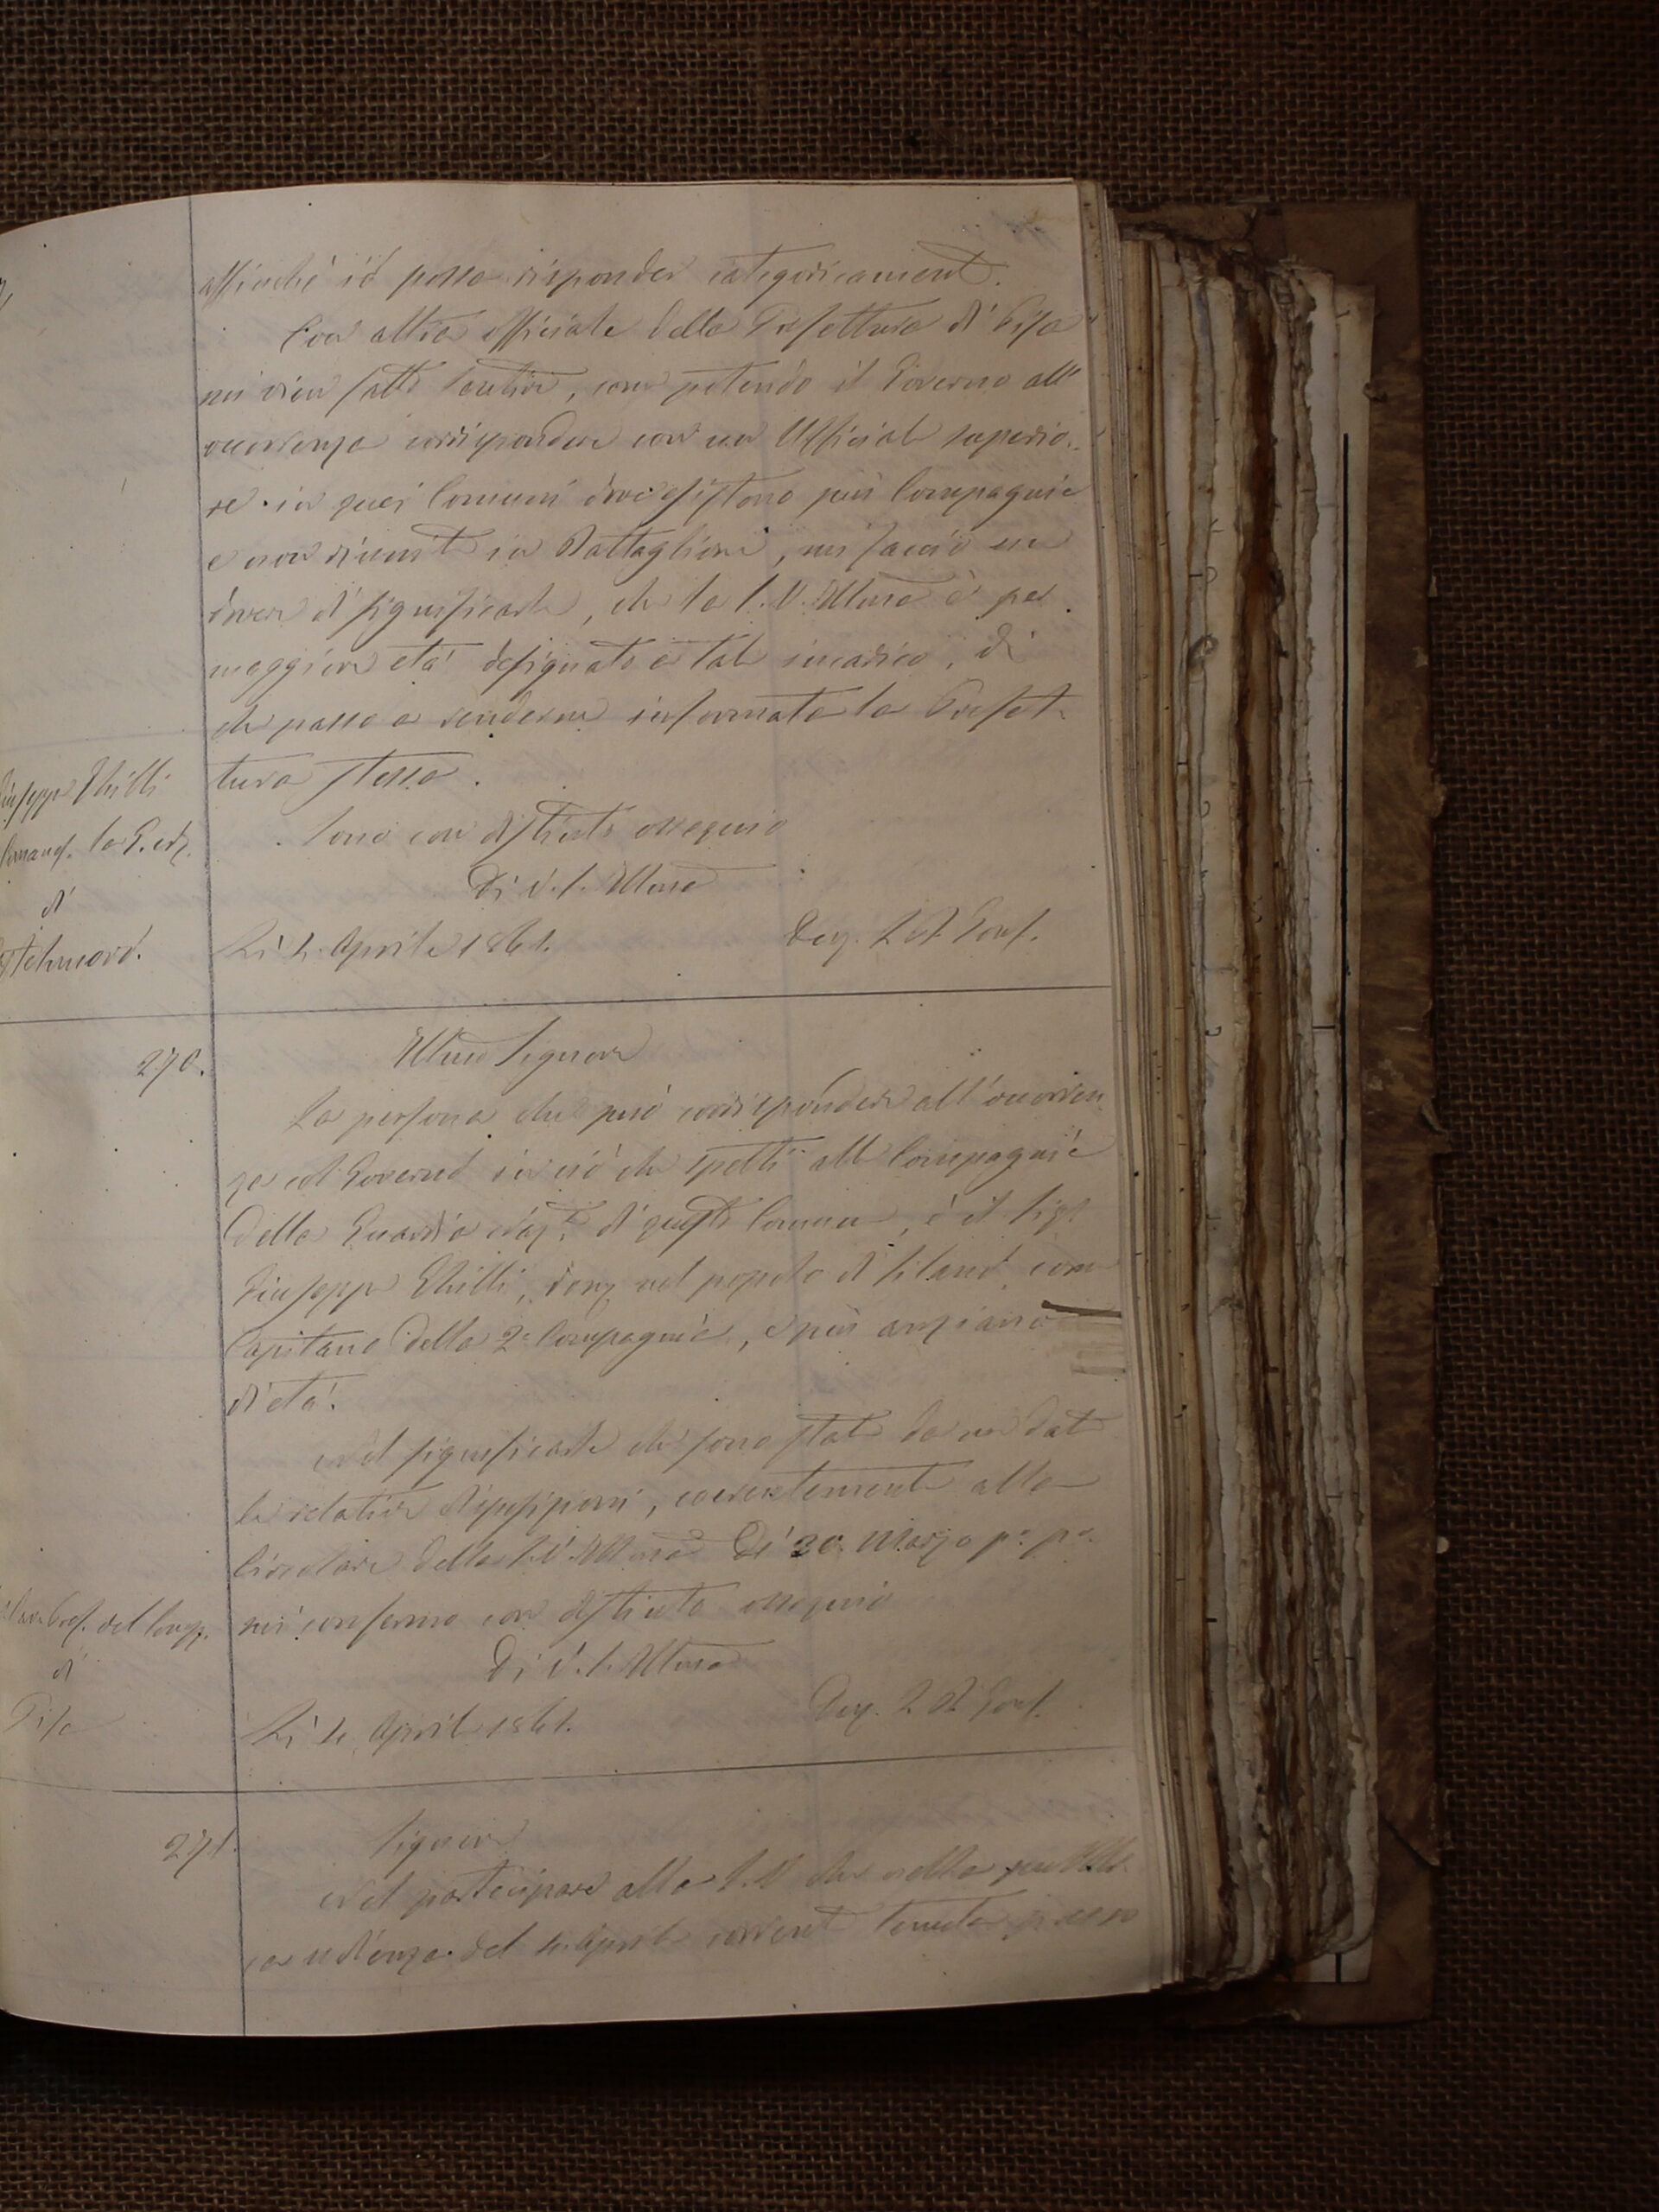 affinché io possa risponder categoricament.
Con altra officiale della Prefettura di Pisa
mi vien fatto sentire, come potendo il Governo all'
occorrenza corrispondere con un Ufficiale superio-
re in quei Comuni ove esistono più Compagnie
e non riunite in Battaglione, mi faccio un
dovere di significarle, che la S.V. Illma è per
maggiore età designato a tale incarico, di
che passo a renderne informata la Prefet-
tura stessa.
Giuseppe
Comand. la G. Nz.
di
Sono con distinto ossequio
Di V.S. Illma
Li 4 Aprile 1861.
Gonf.
270.
Illmo Signore
La persona che può corrispondere all'occorren
za col Governo in ciò che spetti alle Compagnie
della Guardia Nazle di questo Comune, è il Sigr
Giuseppe nel popolo di come
Capitano della 2a Compagnia, e più anziano
di età.
Nel significarle che sono state da me date
le relative disposizioni, coerentemente alla
Circolare della S.V. Illma de' 20. Marzo po. po.
mi confermo con distinto ossequio
Di V.S. Illma
Pref. del Comp.
di
Pisa
Li 4 Aprile 1861.
Gonf.
271.
Signore
Nel partecipare alla S.V. che nella pubbli-
ca udienza del 4. Aprile corrente tenuta presso